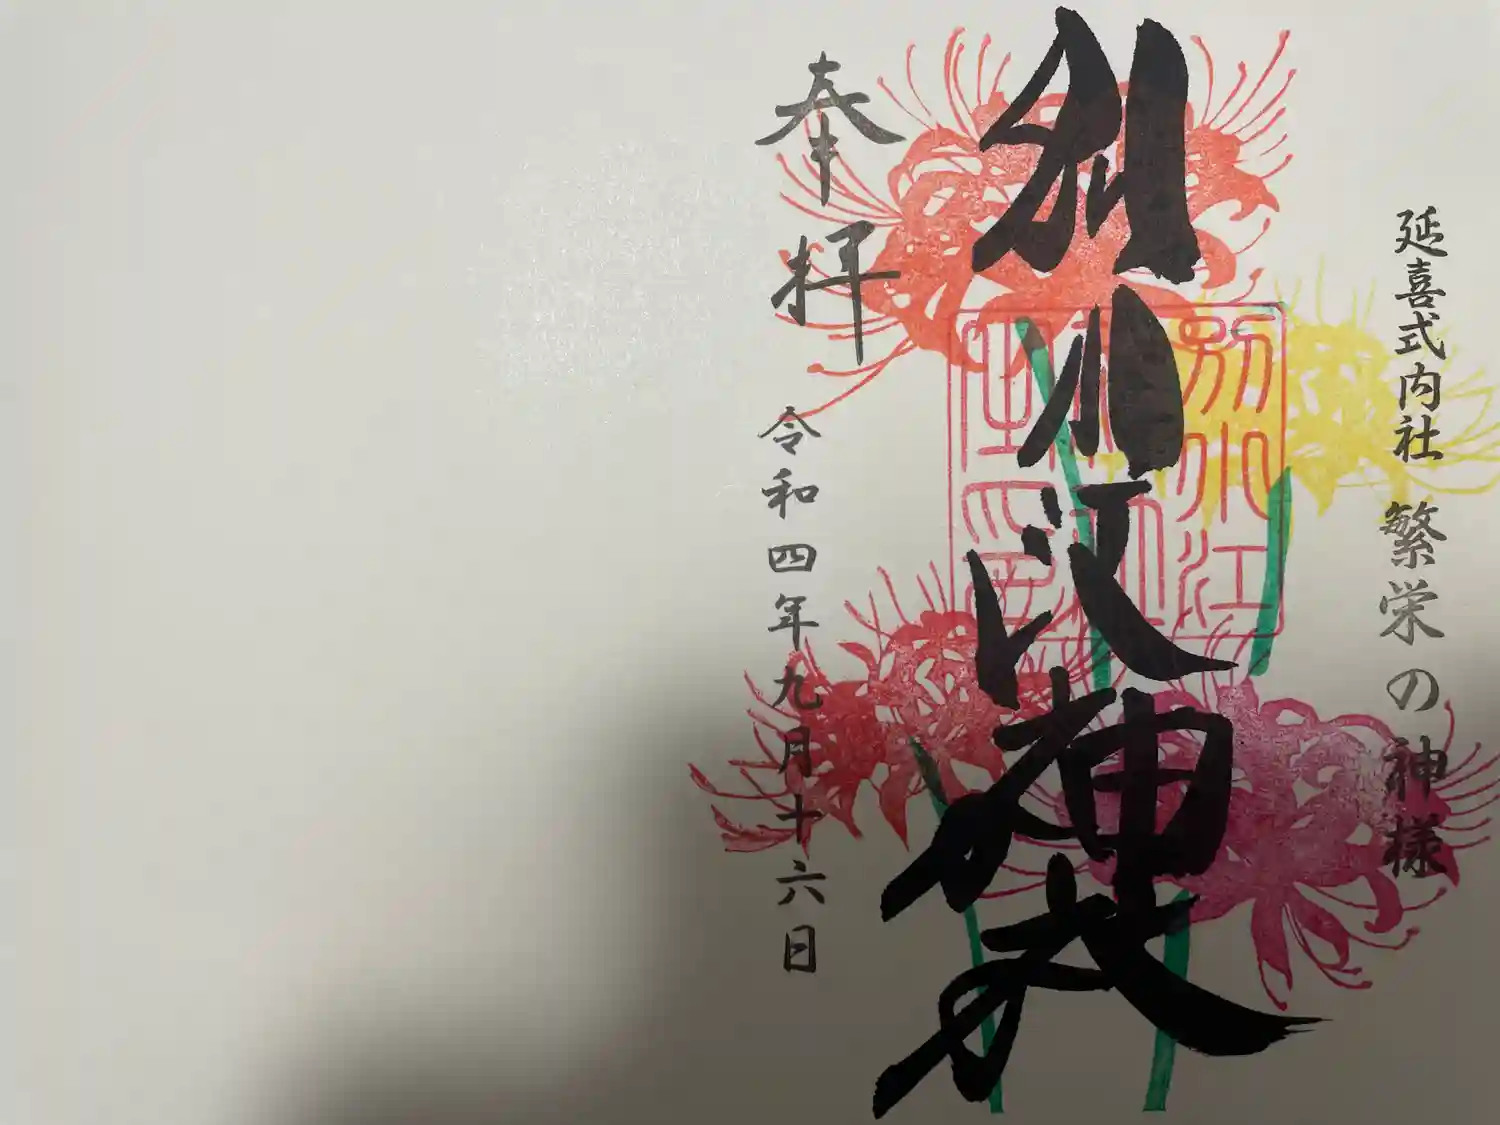 延喜式内社 繁栄の神様
別小江神社
奉拝
令和四年九月十六日
別小江